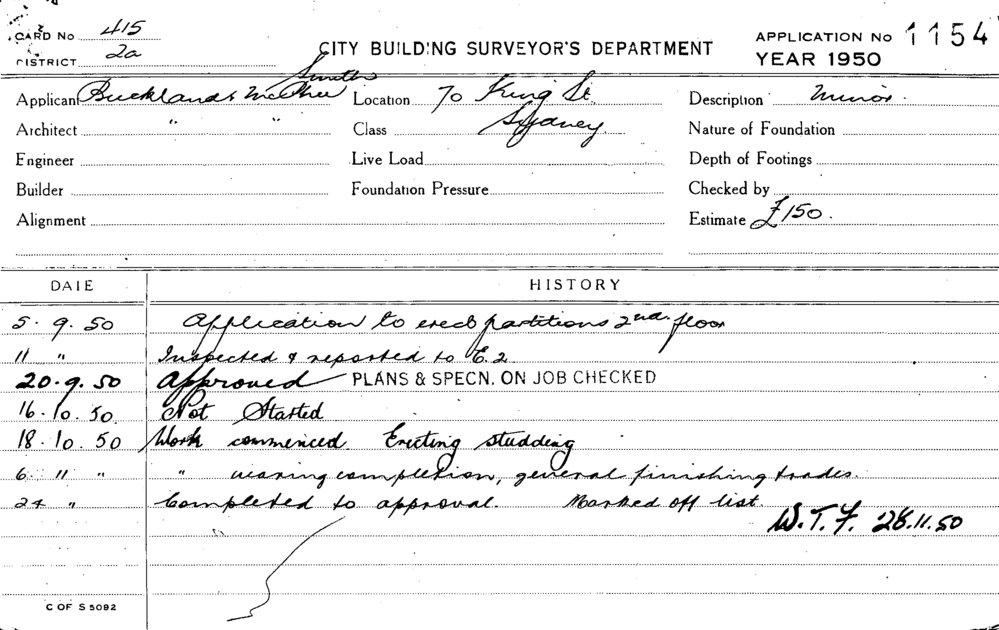 CARD No 415
DISTRICT 2a
CITY BUILDING SURVEYOR'S DEPARTMENT
APPLICATION No 1154
YEAR 1950
Smith
Applicant Buckland & McPhee
Location 70 King St.
Description Minor.
Architect " "
Class Sydney.
Nature of Foundation
Engineer
Live Load
Depth of Footings
Builder
Foundation Pressure
Checked by
Alignment
Estimate £150.
DATE HISTORY
5.9.50 Application to erect partitions 2nd. floor
11 " Inspected & reported to E.2
20.9.50 Approved PLANS & SPECN. ON JOB CHECKED
16.10.50 Not Started
18.10.50 Work commenced. Erecting studding
6 11 " " nearing completion, general finishing trades.
24 " Completed to approval. Marked off list.
W.T.F. 28.11.50
C OF S 5092